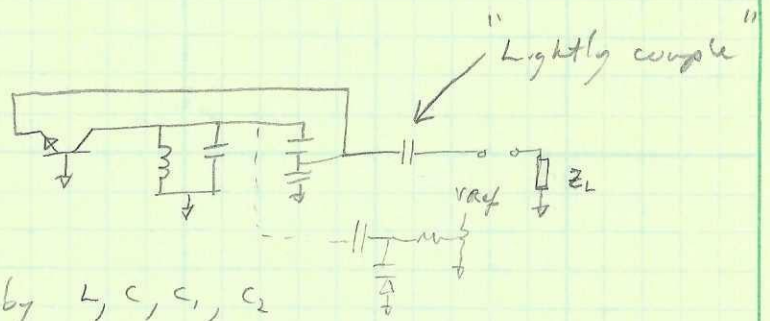 "Lightly couple"
ZL
Vref
by L, C, C1, C2